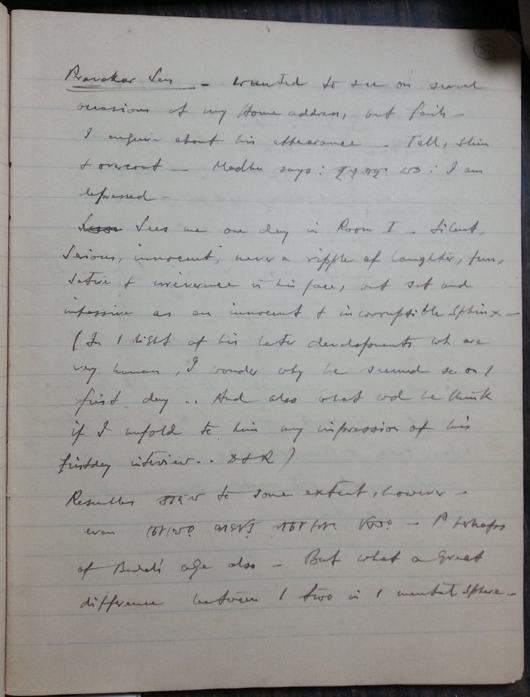 Pravakar Sen - wanted to see on several
occasions at my Home address, but fails -
I enquire about his appearance - Tall, thin
& overcoat - Madhu says: I am
depressed -
Sees me one day in Room I - Silent,
Serious, innocent, never a ripple of laughter, fun,
Satire & irreverence in his face, but set and
impassive as an innocent & incorruptible Sphinx -
(In / light of his later developments wh are
very human, I wonder why he seemed so on /
first day .. And also what wd he think
if I unfold to him my impression of his
firstday interview ..)
Resembles to some extent, however -
even - & perhaps
of age also - But what a great
difference between / two in / mental sphere -